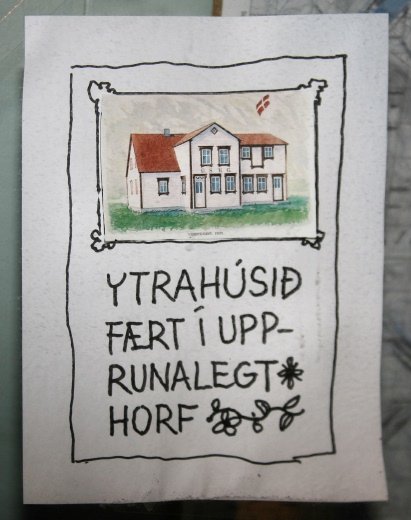 YTRAHÚSIÐ
FÆRT Í UPP-
RUNALEGT
HORF